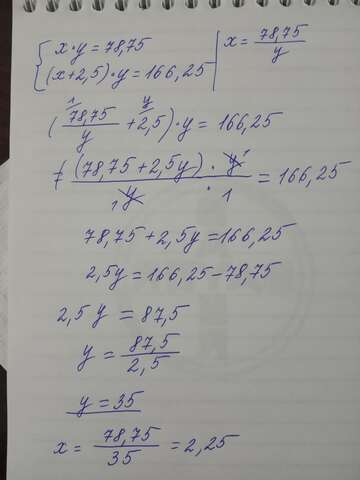 { x·y = 78,75 | x = 78,75/y
(x+2,5)·y = 166,25
(78,75/y + 2,5)·y = 166,25
(78,75+2,5y)·y / y·1 = 166,25
78,75+2,5y = 166,25
2,5y = 166,25-78,75
2,5 y = 87,5
y = 87,5/2,5
y = 35
x = 78,75/35 = 2,25